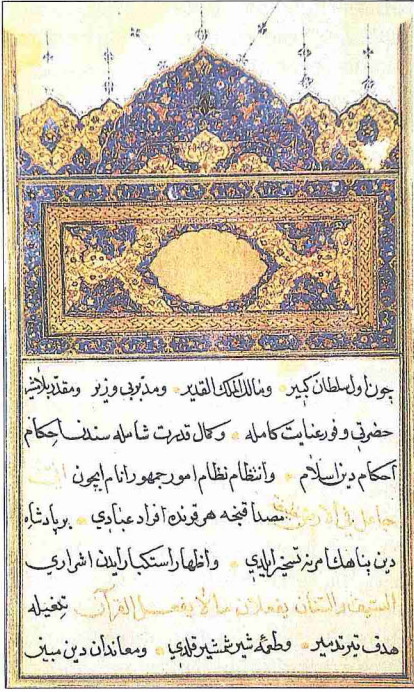 چون اول سلطان كبير * ومالك الملك القدير * ومدبر بى وزير ومقدر بلا مشير
حضرتى وفور عنايت كامله * وكمال قدرت شامله سندن احكام
احكام دين اسلام * وانتظام نظام امور جمهور انام ايچون انى
جاعل فى الارض خليفة مصداقنجه هر قرنده افراد عبادى * بر پادشاه
دين پناهك امرينه تسخير ايلدى * واظهار استكبار ايدن اشرارى
السيف والسنان يفعلان مالا يفعل القرآن تيغيله
هدف تير تدمير * وطعمهٔ شير شمشير قلدى * ومعاندان دين مبين